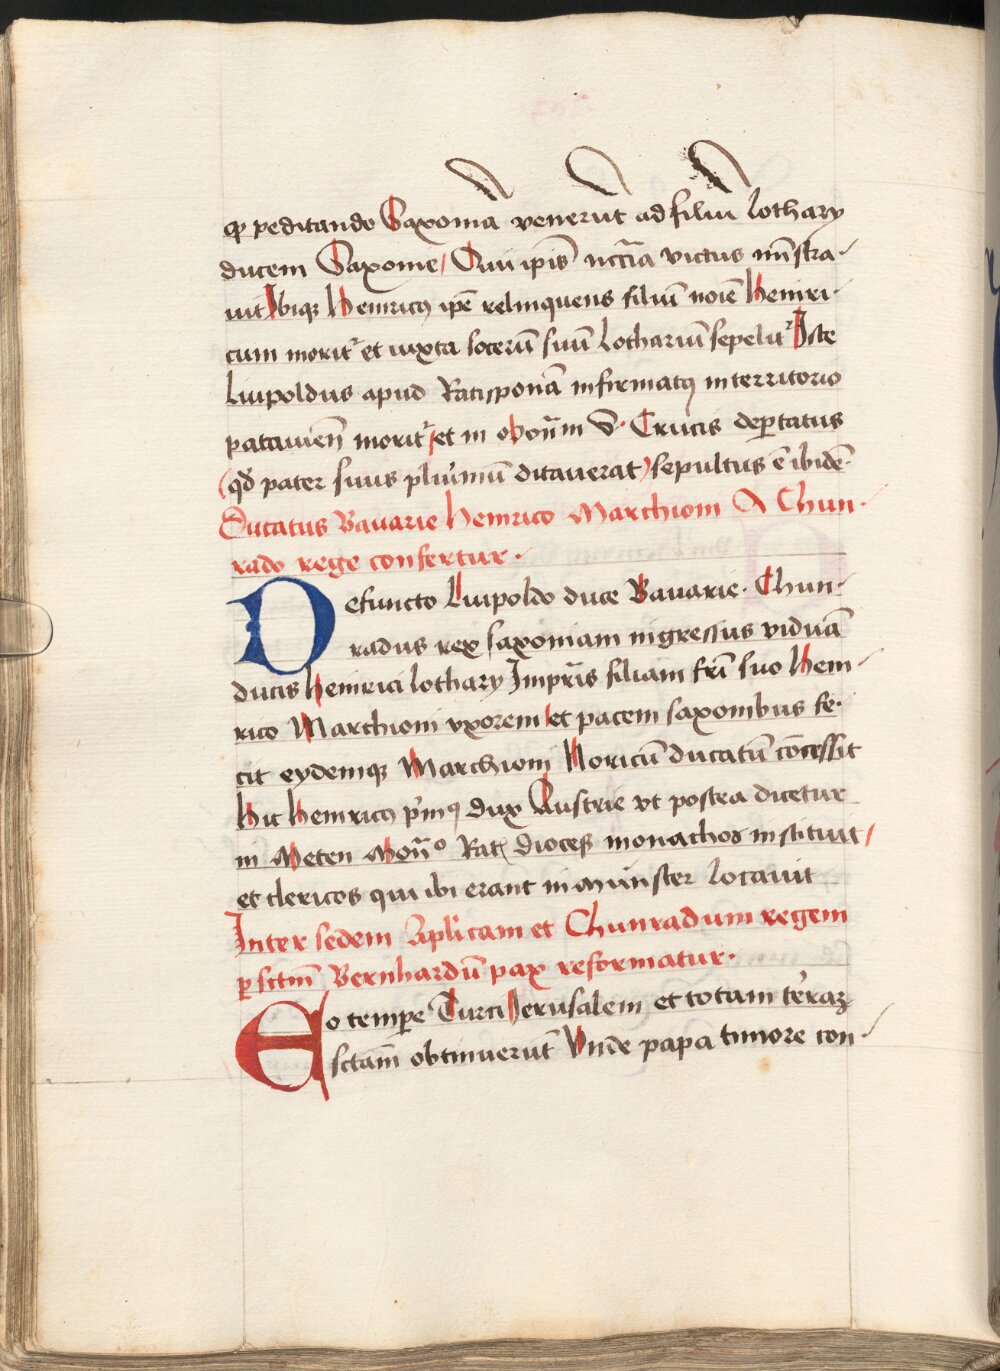 ꝙ peditando Saxoniā venerūt ad filiū lothary
ducem Saxonie / Qui ipīs nccīa victus mīstra-
uit Ibiqꝫ Heinricꝯ ip̄e relinquens filiū noīe Heinri-
cum morit᷑ et iuxta socerū suū Lothariū sepelit᷑ Iste
Luipoldus apud Ratisponā infirmatꝯ in territorio
patauien̄ morit᷑ / et in
Crucis dep̄tatus
(qđ pater suus plu̓imū ditauerat) sepultus ē ibidē·
Ducatus Bauarie Heinrico Marchioni A Chun-
rado rege confertur ·
Defuncto Luipoldo duce Bauarie · Chun-
radus rex saxoniam ingressus viduā
ducis Heinrici lothary Imp̄ris filiam fr̄i suo Hein-
rico Marchioni vxorem et pacem saxonibus fe-
cit eydemqꝫ Marchioni Noricū ducatū cōcessit
Hic Heinricꝯ p̓mꝯ dux Austrie vt postea dicetur
in Meten Mon̄º Rat̄ dioceß monachos instituit /
et clericos qui ibi erant in münster locauit
Inter sedem Ap̄licam et Chunradum regem
ꝑ sctm̄ Bernhardū pax reformatur ·
Eo temꝑe Turci Jerusalem et totam te̓raꝫ
sctam̄ obtinuerūt Vnde papa timore con-